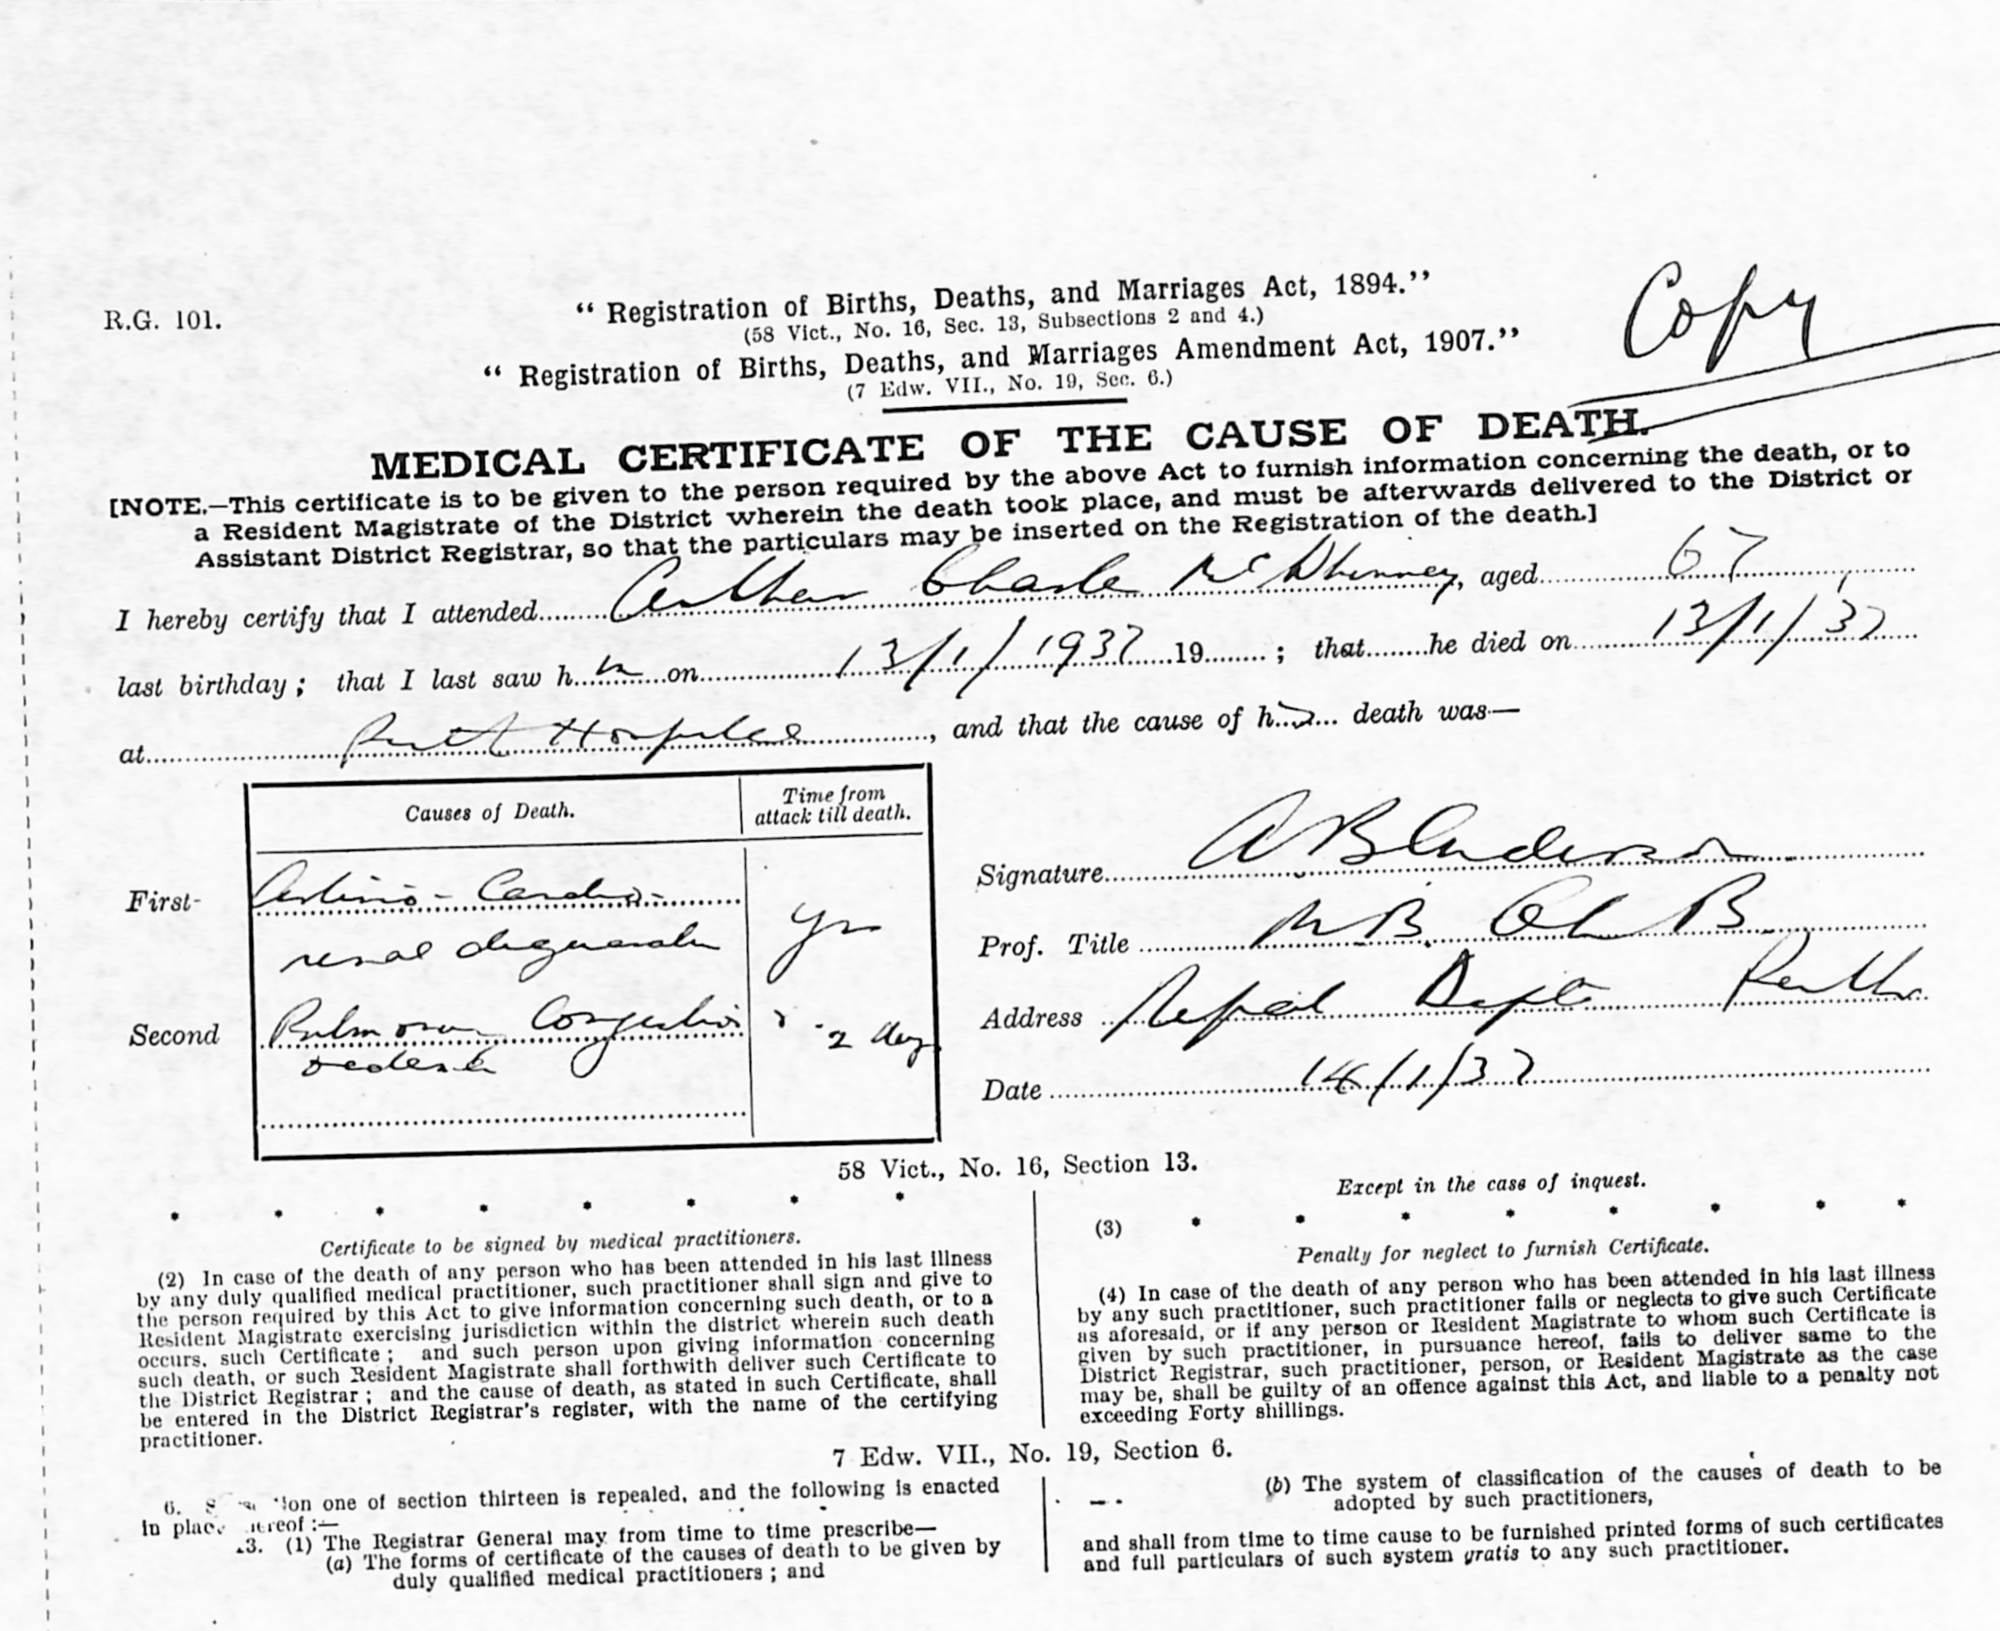 Copy
R.G. 101.
“ Registration of Births, Deaths, and Marriages Act, 1894.”
(58 Vict., No. 16, Sec. 13, Subsections 2 and 4.)
“ Registration of Births, Deaths, and Marriages Amendment Act, 1907.”
(7 Edw. VII., No. 19, Sec. 6.)
MEDICAL CERTIFICATE OF THE CAUSE OF DEATH.
[NOTE.—This certificate is to be given to the person required by the above Act to furnish information concerning the death, or to
a Resident Magistrate of the District wherein the death took place, and must be afterwards delivered to the District or
Assistant District Registrar, so that the particulars may be inserted on the Registration of the death.]
I hereby certify that I attended Arthur Charles, aged 67
last birthday ; that I last saw him on 13/1/1937 19 ; that he died on 13/1/37
at Perth Hospital, and that the cause of his death was—
Causes of Death.
Time from
attack till death.
First- Arterio - Cardio - yrs
renal degeneration
Second Pulmonary Congestion 2 days
oedema
Signature A B Anderson
Prof. Title M B. Ch B
Address Repat Dept Perth
Date 14/1/37
58 Vict., No. 16, Section 13.
* * * * * * * *
Certificate to be signed by medical practitioners.
(2) In case of the death of any person who has been attended in his last illness
by any duly qualified medical practitioner, such practitioner shall sign and give to
the person required by this Act to give information concerning such death, or to a
Resident Magistrate exercising jurisdiction within the district wherein such death
occurs, such Certificate ; and such person upon giving information concerning
such death, or such Resident Magistrate shall forthwith deliver such Certificate to
the District Registrar ; and the cause of death, as stated in such Certificate, shall
be entered in the District Registrar's register, with the name of the certifying
practitioner.
Except in the case of inquest.
(3) * * * * * * * *
Penalty for neglect to furnish Certificate.
(4) In case of the death of any person who has been attended in his last illness
by any such practitioner, such practitioner fails or neglects to give such Certificate
as aforesaid, or if any person or Resident Magistrate to whom such Certificate is
given by such practitioner, in pursuance hereof, fails to deliver same to the
District Registrar, such practitioner, person, or Resident Magistrate as the case
may be, shall be guilty of an offence against this Act, and liable to a penalty not
exceeding Forty shillings.
7 Edw. VII., No. 19, Section 6.
6. one of section thirteen is repealed, and the following is enacted
in place hereof :—
.3. (1) The Registrar General may from time to time prescribe—
(a) The forms of certificate of the causes of death to be given by
duly qualified medical practitioners ; and
(b) The system of classification of the causes of death to be
adopted by such practitioners,
and shall from time to time cause to be furnished printed forms of such certificates
and full particulars of such system gratis to any such practitioner.